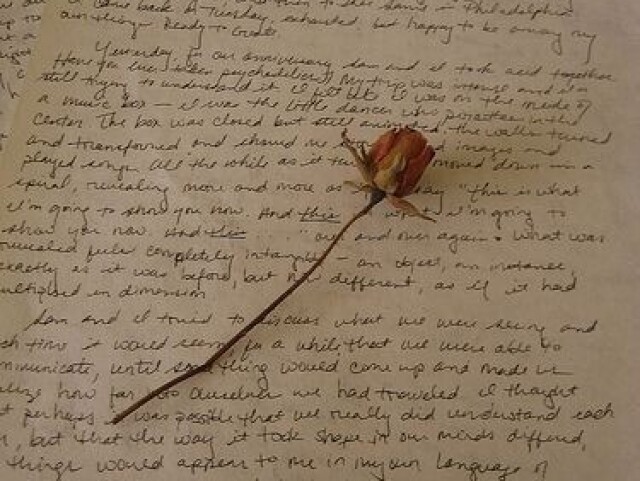 I came back on Tuesday, exhausted, but happy to be among my
own things. Ready to create.
Yesterday, for our anniversary Sam and I took acid together
Have you ever taken psychedelics? My trip was intense and I'm
still trying to understand it. I felt like I was on the inside of
a music box — I was the little dancer who pirouettes in the
center. The box was closed but still animated. The walls turned
and transformed and showed me images and
played songs. All the while as it moved down in a
spiral, revealing more and more as say "this is what
I'm going to show you now. And this is what I'm going to
show you now. And this..." over and over again. What was
revealed felt completely intangible — an object, an instance,
exactly as it was before, but now different, as if it had
multiplied in dimension
Sam and I tried to discuss what we were seeing and
each time it would seem for a while that we were able to
communicate, until something would come up and made us
realize how far into ourselves we had traveled. I thought
that perhaps it was possible that we really did understand each
, but that the way it took shape in our minds differed,
things would appear to me in my own language of